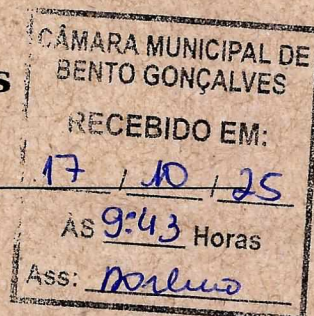 CÂMARA MUNICIPAL DE
BENTO GONÇALVES
s
RECEBIDO EM:
17 / 10 / 25
AS 9:43 Horas
Ass: